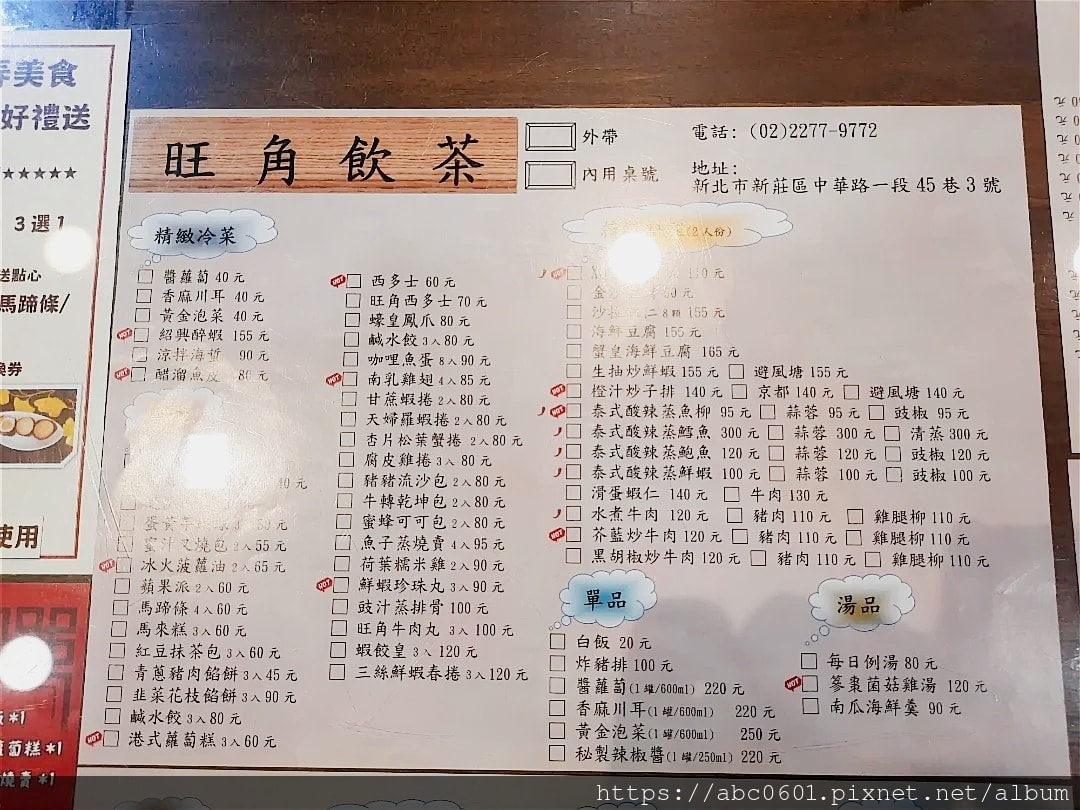 美食
好禮送
★★★★★
3選1
送點心
馬蹄條/
換券
使用
蘿蔔糕*1
燒賣*1
旺角飲茶
外帶
內用桌號
電話: (02)2277-9772
地址:
新北市新莊區中華路一段45巷3號
精緻冷菜
醬蘿蔔 40元
香麻川耳 40元
黃金泡菜 40元
HOT 紹興醉蝦 155元
涼拌海蜇 90元
HOT 醋溜魚皮 80元
40元
蜜汁叉燒包 2入55元
HOT 冰火菠蘿油 2入65元
蘋果派 2入60元
馬蹄條 4入60元
馬來糕 3入60元
紅豆抹茶包 3入60元
青蔥豬肉餡餅 3入45元
韭菜花枝餡餅 3入90元
鹹水餃 3入80元
HOT 港式蘿蔔糕 3入60元
HOT 西多士 60元
旺角西多士 70元
蠔皇鳳爪 80元
鹹水餃 3入80元
咖哩魚蛋 8入90元
HOT 南乳雞翅 4入85元
甘蔗蝦捲 2入80元
天婦羅蝦捲 2入80元
杏片松葉蟹捲 2入80元
腐皮雞捲 3入80元
豬豬流沙包 2入80元
牛轉乾坤包 2入80元
蜜蜂可可包 2入80元
魚子蒸燒賣 4入95元
荷葉糯米雞 2入90元
HOT 鮮蝦珍珠丸 3入90元
豉汁蒸排骨 100元
旺角牛肉丸 3入100元
蝦餃皇 3入120元
三絲鮮蝦春捲 3入120元
(2人份)
HOT 110元
8顆 155元
海鮮豆腐 155元
蟹皇海鮮豆腐 165元
生抽炒鮮蝦 155元 避風塘 155元
HOT 橙汁炒子排 140元 京都 140元 避風塘 140元
HOT 泰式酸辣蒸魚柳 95元 蒜蓉 95元 豉椒 95元
泰式酸辣蒸鱈魚 300元 蒜蓉 300元 清蒸 300元
泰式酸辣蒸鮑魚 120元 蒜蓉 120元 豉椒 120元
泰式酸辣蒸鮮蝦 100元 蒜蓉 100元 豉椒 100元
滑蛋蝦仁 140元 牛肉 130元
水煮牛肉 120元 豬肉 110元 雞腿柳 110元
HOT 芥藍炒牛肉 120元 豬肉 110元 雞腿柳 110元
黑胡椒炒牛肉 120元 豬肉 110元 雞腿柳 110元
單品
白飯 20元
炸豬排 100元
醬蘿蔔(1罐/600ml) 220元
香麻川耳(1罐/600ml) 220元
黃金泡菜(1罐/600ml) 250元
秘製辣椒醬(1罐/250ml) 220元
湯品
每日例湯 80元
HOT 蔘棗菌菇雞湯 120元
南瓜海鮮羹 90元
https://abc0601.pixnet.net/album